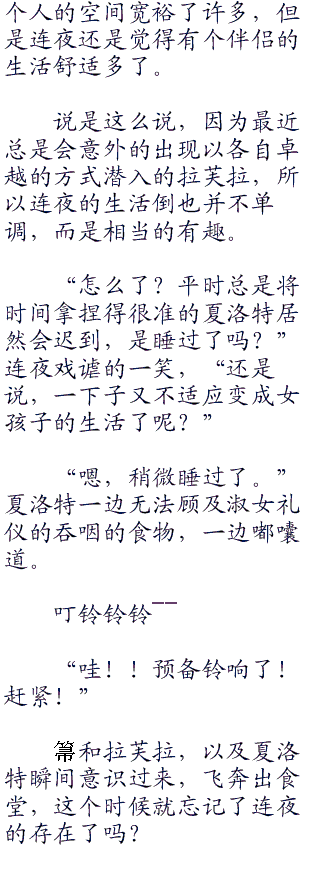 个人的空间宽裕了许多，但
是连夜还是觉得有个伴侣的
生活舒适多了。
说是这么说，因为最近
总是会意外的出现以各自卓
越的方式潜入的拉芙拉，所
以连夜的生活倒也并不单
调，而是相当的有趣。
“怎么了？平时总是将
时间拿捏得很准的夏洛特居
然会迟到，是睡过了吗？”
连夜戏谑的一笑，“还是
说，一下子又不适应变成女
孩子的生活了呢？”
“嗯，稍微睡过了。”
夏洛特一边无法顾及淑女礼
仪的吞咽的食物，一边嘟囔
道。
叮铃铃铃――
“哇！！预备铃响了！
赶紧！”
箒和拉芙拉，以及夏洛
特瞬间意识过来，飞奔出食
堂，这个时候就忘记了连夜
的存在了吗？